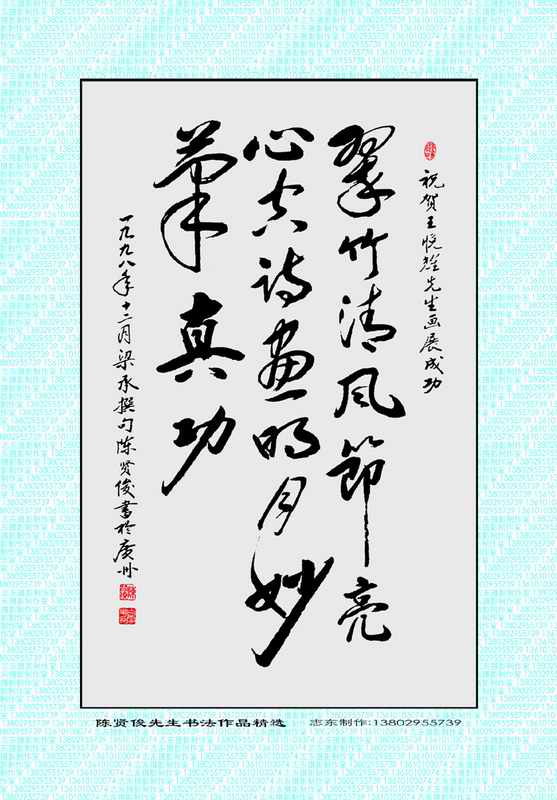 祝贺王悦雄先生画展成功
翠竹清风節亮
心空诗画明月妙
筆真功
一九九八年十二月梁承撰句陈贤俊書於廣州
陈贤俊先生书法作品精选 志东制作:13802955739